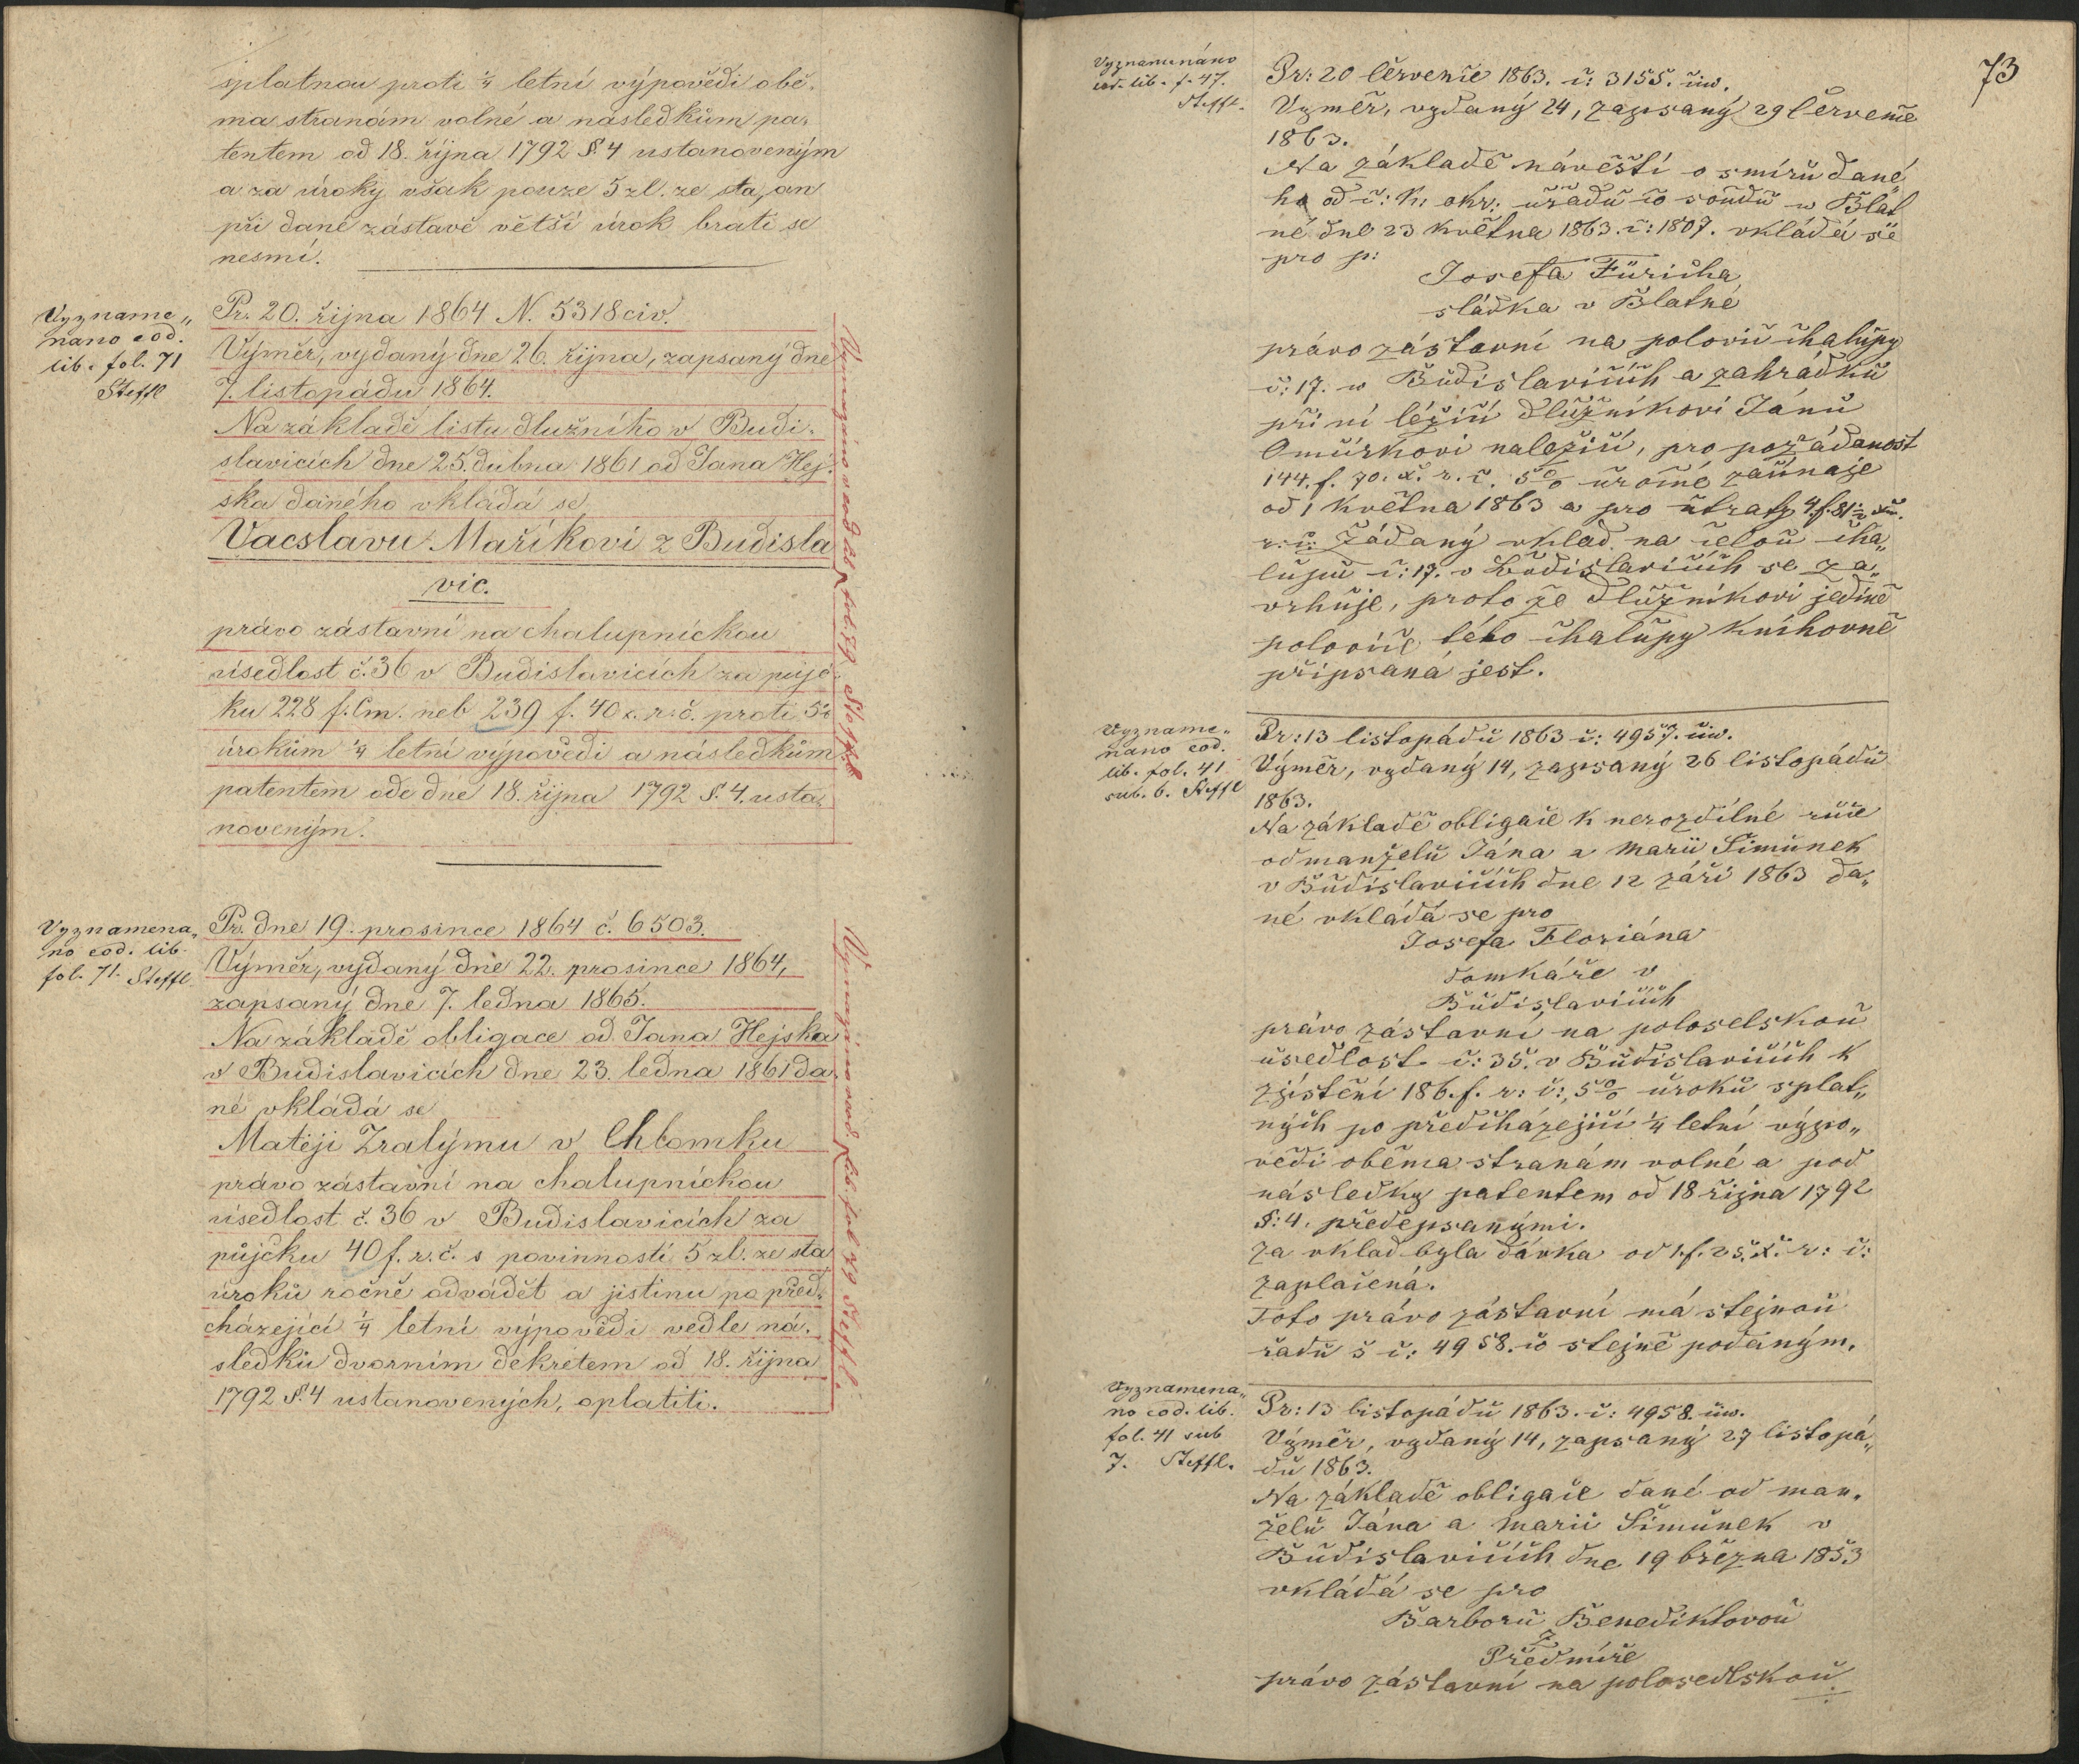 splatnou proti 1/4 letní výpovědi obě-
ma stranám volné a následkům pa-
tentem od 18. října 1792 §. 4 ustanoveným
a za úroky však pouze 5 zl. ze sta, an
při dané zástavě větší úrok brati se
nesmí.
Vyzname„
nano eod.
lib. fol. 71
Steffl
Pr. 20. října 1864 N. 5318 civ.
Výměr, vydaný dne 26. října, zapsaný dne
7. listopádu 1864.
Na základě listu dlužního v Budi-
slavicích dne 25. dubna 1861 od Jana Hej-
ska daného vkládá se
Vacslavu Maříkovi z Budisla
vic.
právo zástavní na chalupnickou
usedlost č. 36 v Budislavicích za půjč-
ku 228 f. Cm. neb 239 f. 40 x. r. č. proti 5%
úrokům 1/4 letní výpovědi a následkům
patentem ode dne 18. října 1792 §. 4. usta-
noveným.
Vymazáno eod. lib. fol. 79 Steffl
Vyznamena„
no eod. lib.
fol. 71. Steffl
Pr. dne 19. prosince 1864 č. 6503.
Výměr, vydaný dne 22. prosince 1864,
zapsaný dne 7. ledna 1865.
Na základě obligace od Jana Hejska
v Budislavicích dne 23. ledna 1861 da-
né vkládá se
Matěji Zralýmu v Chlomku
právo zástavní na chalupnickou
usedlost č. 36 v Budislavicích za
půjčku 40 f. r. č. s povinností 5 zl. ze sta
úroků ročně odvádět a jistinu po před-
cházející 1/4 letní výpovědi vedle ná-
sledků dvorním dekretem od 18. října
1792 §. 4 ustanovených, oplatiti.
Vymazáno eod. lib. fol. 79 Steffl.
73
Vyznamenáno
eod. lib. f. 47.
Steffl.
Pr: 20 července 1863. č: 3155. civ.
Výměr, vydaný 24, zapsaný 29 července
1863.
Na základě návěští o smíru dané
ho od c: k: okr: úřadu co soudu w Blat
né dne 23 května 1863. č: 1807. vkládá se
pro p:
Josefa Füricha
sládka v Blatné
právo zástavní na polovic chalupy
č: 17. w Budislavicích a zahrádku
při ní ležící dlužníkovi Jánu
Omúrkovi naležící, pro požádanost
144. f. 70. x. r. č. 5% úročné začínaje
od 1 května 1863 a pro útraty 4. f. 81 1/2 x.
r: č: Žádaný vklad na celou cha„
lupu č: 17. v Budislavicích se za„
vrhuje, proto že dlužníkovi jedině
polovic této chalupy knihovně
připsaná jest.
Vyzname„
nano eod.
lib. fol. 41
sub. 6. Steffl
Pr: 13 listopádu 1863 č: 4957. civ.
Výměr, vydaný 14, zapsaný 26 listopádu
1863.
Na základě obligace k nerozdílné ruce
od manželu Jána a Marii Šimůnek
v Budislavicích dne 12 září 1863 da„
né vkládá se pro
Josefa Floriána
domkáře v
Budislavicích
právo zástavní na poloselskou
usedlost č: 35. v Budislavicích k
zjistění 186. f. r: č:, 5% úroku splat„
ných po předcházející 1/4 letní výpo„
vědi oběma stranám volné a pod
následky patentem od 18 října 1792
§: 4. předepsanými.
Za vklad byla dávka od 1. f. 25. x. r: č:
zaplacená.
Toto právo zástavní má stejnou
řadu s č: 4958. co stejně podaným.
Vyznamena„
no eod. lib.
fol. 41 sub
7. Steffl.
Pr: 13 listopádu 1863. č: 4958. civ.
Výměr, vydaný 14, zapsaný 27 listopá„
du 1863.
Na základě obligace dané od man„
želu Jána a Marii Šimůnek v
Budislavicích dne 19 března 1853
vkládá se pro
Barboru Benediktovou
z
Předmíře
právo zástavní na polosedlskou